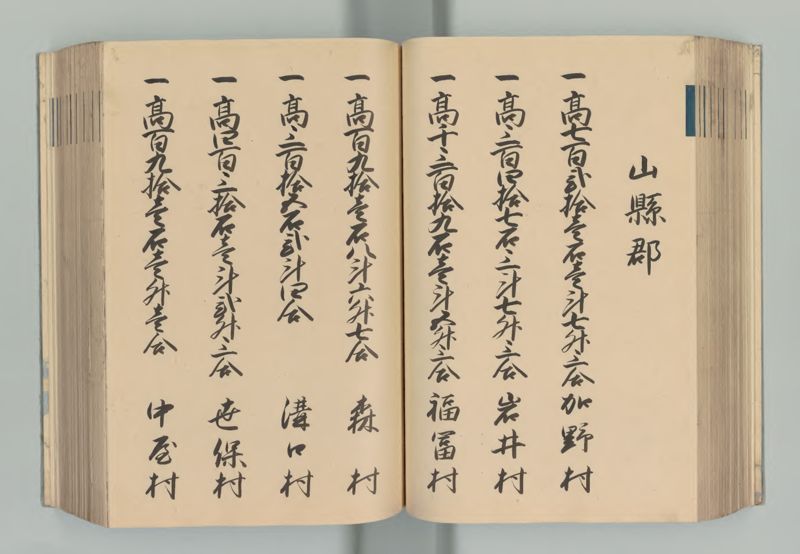 山縣郡
一高七百弐拾壱石壱斗七升三合 加野村
一高三百四拾七石三斗七升三合 岩井村
一高千三百拾九石壱斗五升三合 福冨村
一高百九拾壱石八斗六升七合 森村
一高三百拾五石弐斗四合 溝口村
一高四百三拾石壱斗弐升三合 世保村
一高百九拾壱石壱升壱合 中屋村